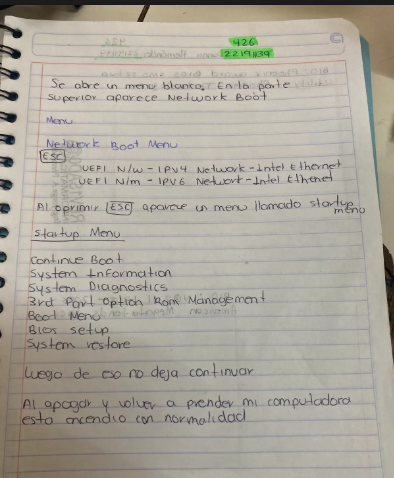 426
22191139
Se abre un menu blanco, En la parte
superior aparece Network Boot
Menu
Network Boot Menu
ESC
UEFI N/w - IPV4 Network - Intel Ethernet
UEFI N/m - IPV6 Network - Intel Ethenet
Al oprimir ESC aparece un menu llamado startup
menu
Startup Menu
Continue Boot
System Information
System Diagnostics
3rd Part Option Rom Management
Boot Menu
Bios setup
System restore
Luego de eso no deja continuar
Al apagar y volver a prender mi computadora
esta encendio con normalidad